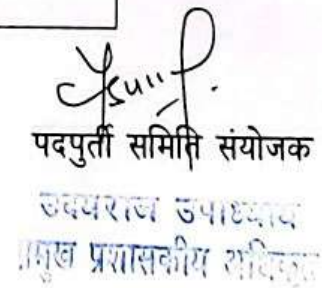 पदपुर्ती समिति संयोजक
उदयराज उपाध्याय
प्रमुख प्रशासकीय अधिकृत